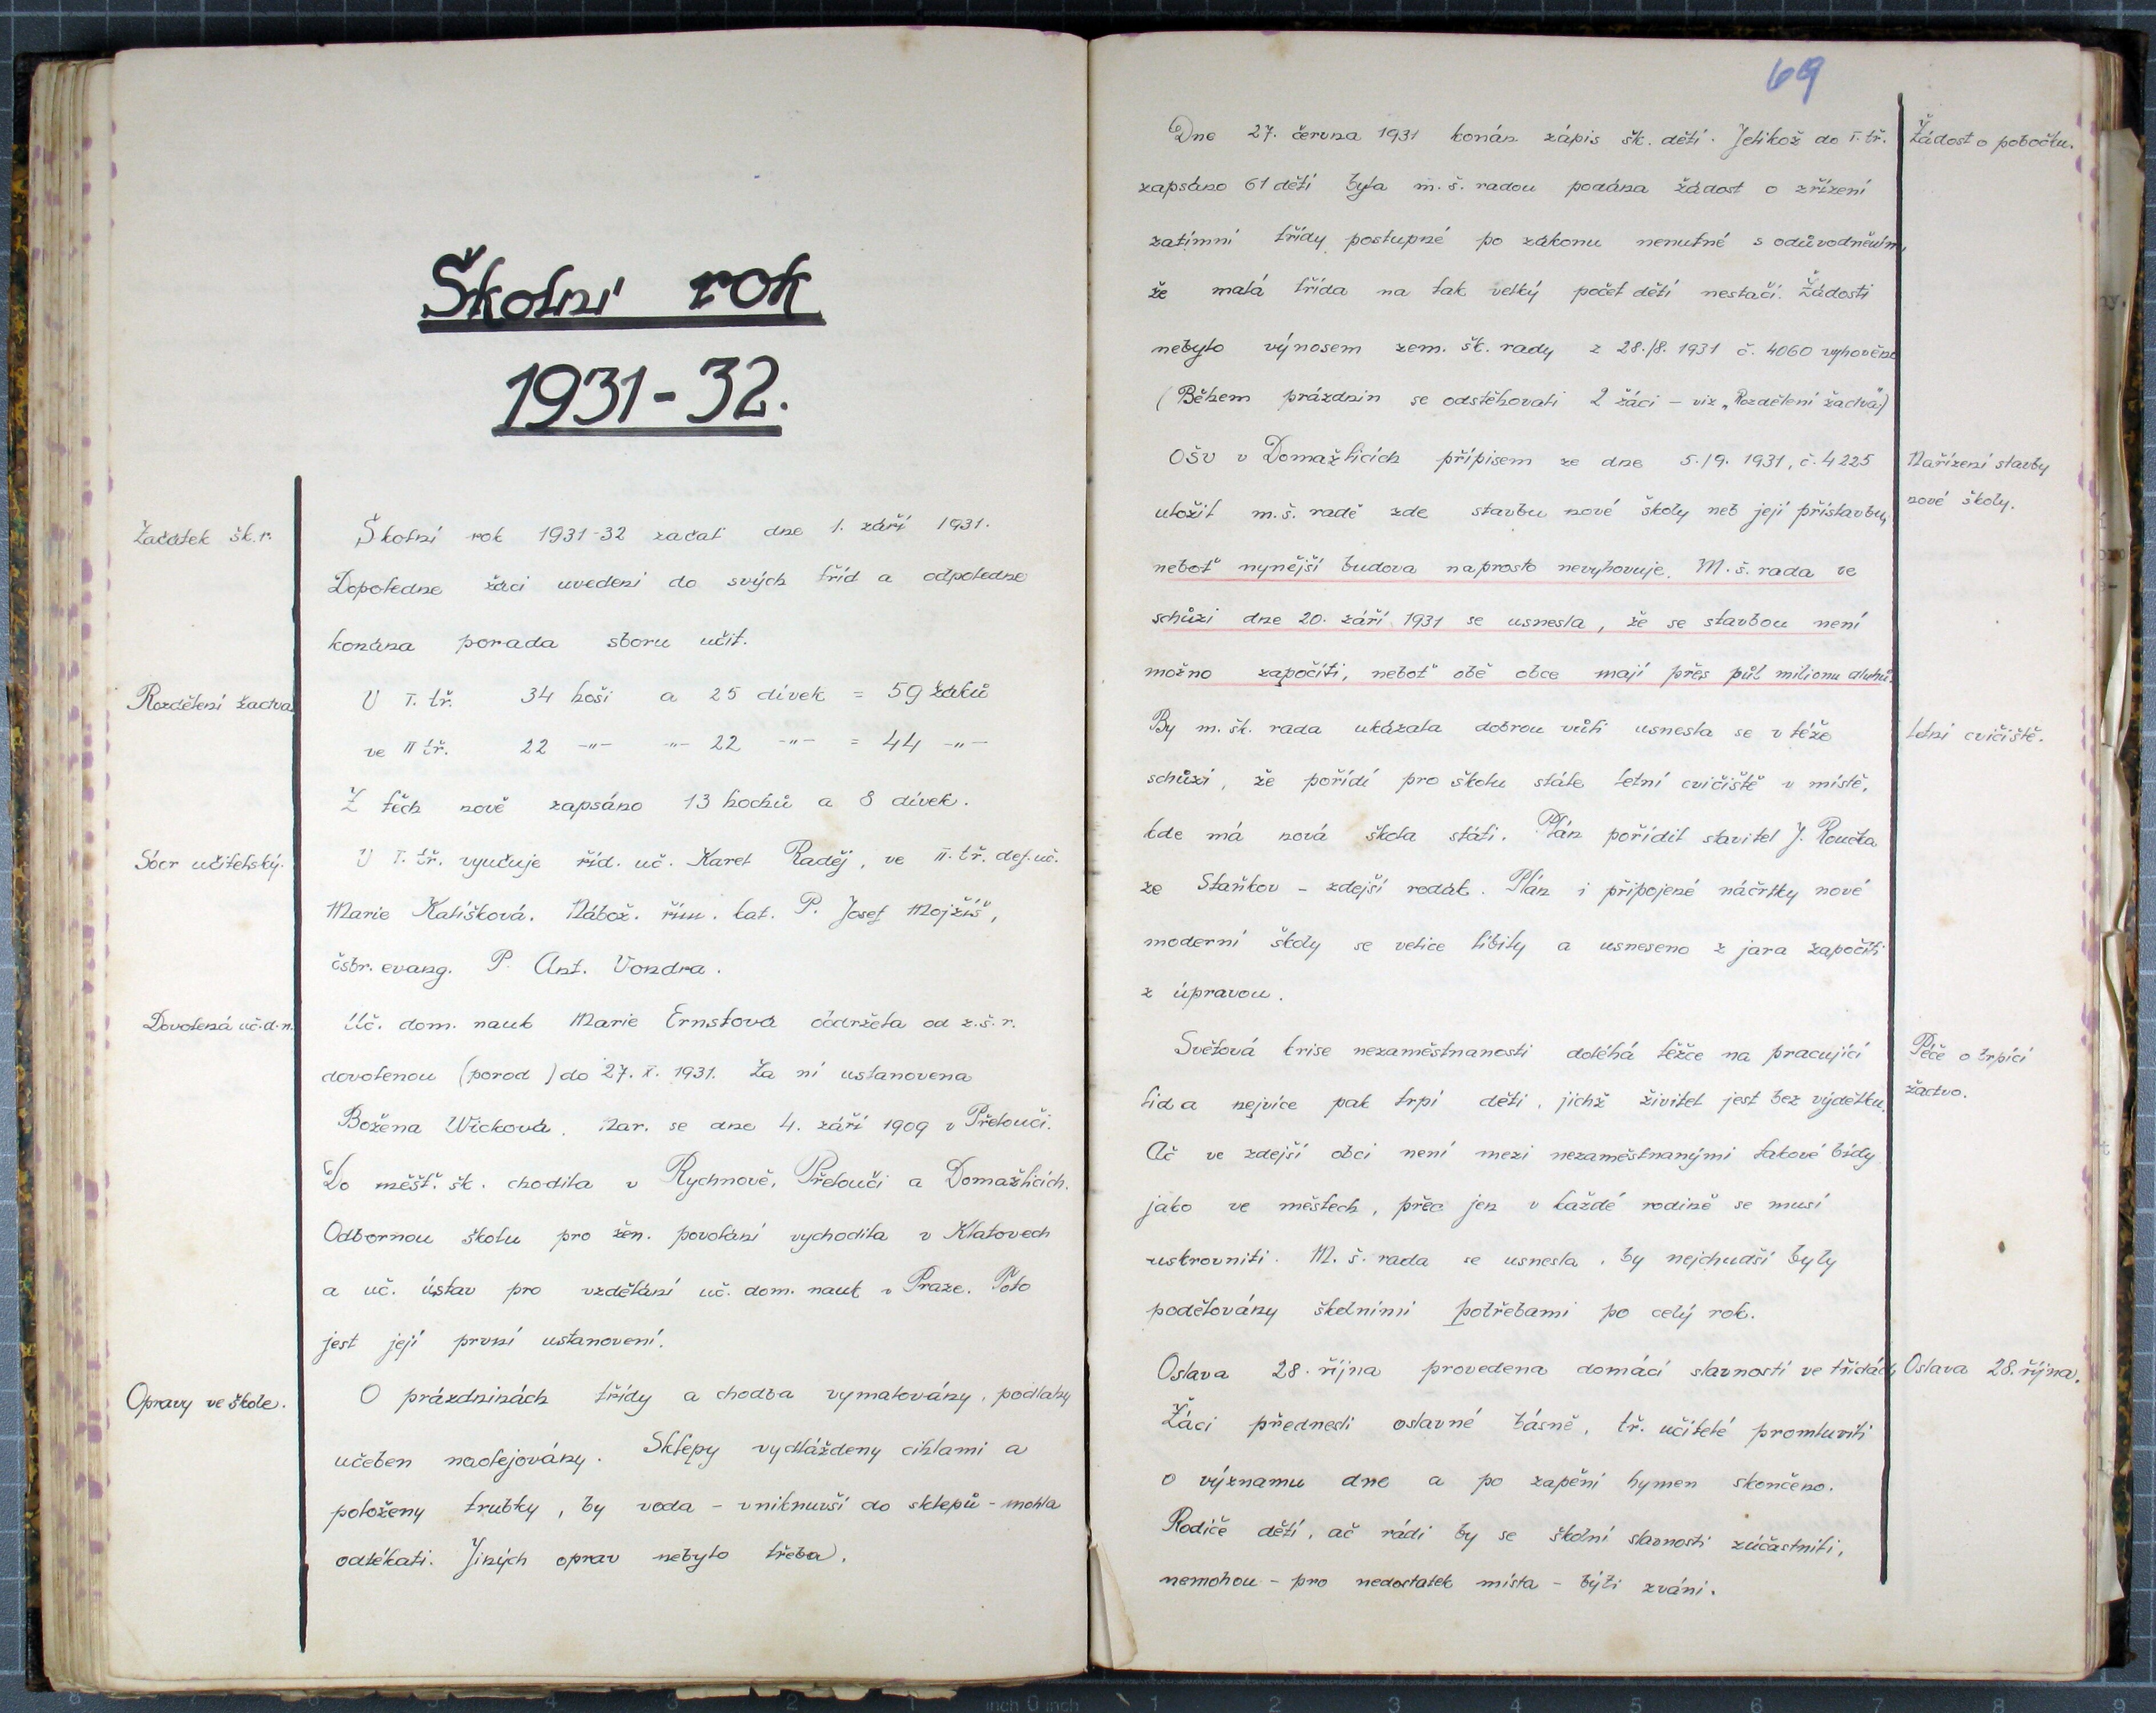 Školní rok
1931-32.
Začátek šk. r.
Školní rok 1931-32 začal dne 1. září 1931.
Dopoledne žáci uvedeni do svých tříd a odpoledne
konána porada sboru učit.
Rozdělení žactva
V I. tř. 34 hoši a 25 dívek = 59 žáků
ve II tř. 22 -"- -"- 22 -"- = 44 -"-
Z těch nově zapsáno 13 hochů a 8 dívek.
Sbor učitelský.
V I. tř. vyučuje říd. uč. Karel Raděj, ve II. tř. def. uč.
Marie Kališková. Nábož. řím. kat. P. Josef Mojžíš,
čsbr. evang. P. Ant. Vondra.
Dovolená uč. d. n.
Uč. dom. nauk Marie Ernstová obdržela od z. š. r.
dovolenou (porod) do 27. X. 1931. Za ní ustanovena
Božena Wicková. Nar. se dne 4. září 1909 v Přelouči.
Do měšť. šk. chodila v Rychnově, Přelouči a Domažlicích.
Odbornou školu pro žen. povolání vychodila v Klatovech
a uč. ústav pro vzdělání uč. dom. nauk v Praze. Toto
jest její první ustanovení.
Opravy ve škole.
O prázdninách třídy a chodba vymalovány, podlahy
učeben naolejovány. Sklepy vydlážděny cihlami a
položeny trubky, by voda - vniknuvší do sklepů - mohla
odtékati. Jiných oprav nebylo třeba.
69
Dne 27. června 1931 konán zápis šk. dětí. Jelikož do I. tř.
Žádost o pobočku.
zapsáno 61 dětí byla m. š. radou podána žádost o zřízení
zatímní třídy postupné po zákonu nenutné s odůvodněním,
že malá třída na tak velký počet dětí nestačí. Žádosti
nebylo výnosem zem. šk. rady z 28./8. 1931 č. 4060 vyhověno
(Během prázdnin se odstěhovali 2 žáci - viz „Rozdělení žactva")
OŠV v Domažlicích přípisem ze dne 5./9. 1931, č. 4225
Nařízení stavby
uložil m. š. radě zde stavbu nové školy neb její přístavbu,
nové školy.
neboť nynější budova naprosto nevyhovuje. M. š. rada ve
schůzi dne 20. září 1931 se usnesla, že se stavbou není
možno započíti, neboť obě obce mají přes půl milionu dluhů.
By m. šk. rada ukázala dobrou vůli usnesla se v téže
Letní cvičiště.
schůzi, že pořídí pro školu stálé letní cvičiště v místě,
kde má nová škola státi. Plán pořídil stavitel J. Roučka
ze Staňkov - zdejší rodák. Plán i připojené náčrtky nové
moderní školy se velice líbily a usneseno z jara započíti
z úpravou.
Světová krise nezaměstnanosti doléhá těžce na pracující
Péče o trpící
lid a nejvíce pak trpí děti, jichž živitel jest bez výdělku.
žactvo.
Ač ve zdejší obci není mezi nezaměstnanými takové bídy
jako ve městech, přec jen v každé rodině se musí
uskrovniti. M. š. rada se usnesla, by nejchudší byly
podělovány školními potřebami po celý rok.
Oslava 28. října provedena domácí slavností ve třídách,
Oslava 28. října.
Žáci přednesli oslavné básně, tř. učitelé promluvili
o významu dne a po zapění hymen skončeno.
Rodiče dětí, ač rádi by se školní slavnosti zúčastnili,
nemohou - pro nedostatek místa - býti zváni.